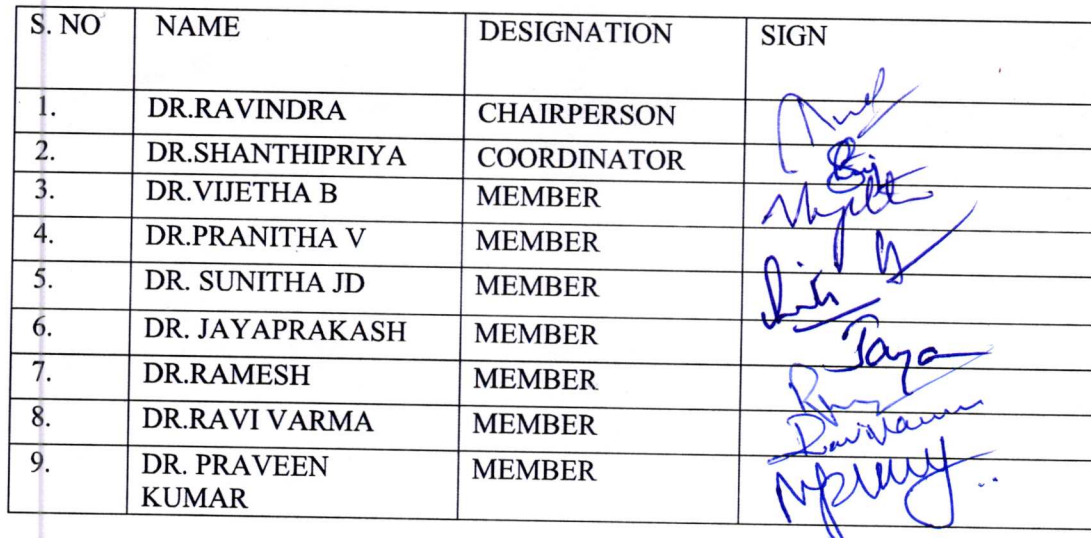 S. NO NAME DESIGNATION SIGN
1. DR.RAVINDRA CHAIRPERSON
2. DR.SHANTHIPRIYA COORDINATOR
3. DR.VIJETHA B MEMBER
4. DR.PRANITHA V MEMBER
5. DR. SUNITHA JD MEMBER
6. DR. JAYAPRAKASH MEMBER Jaya
7. DR.RAMESH MEMBER
8. DR.RAVI VARMA MEMBER
9. DR. PRAVEEN MEMBER
KUMAR